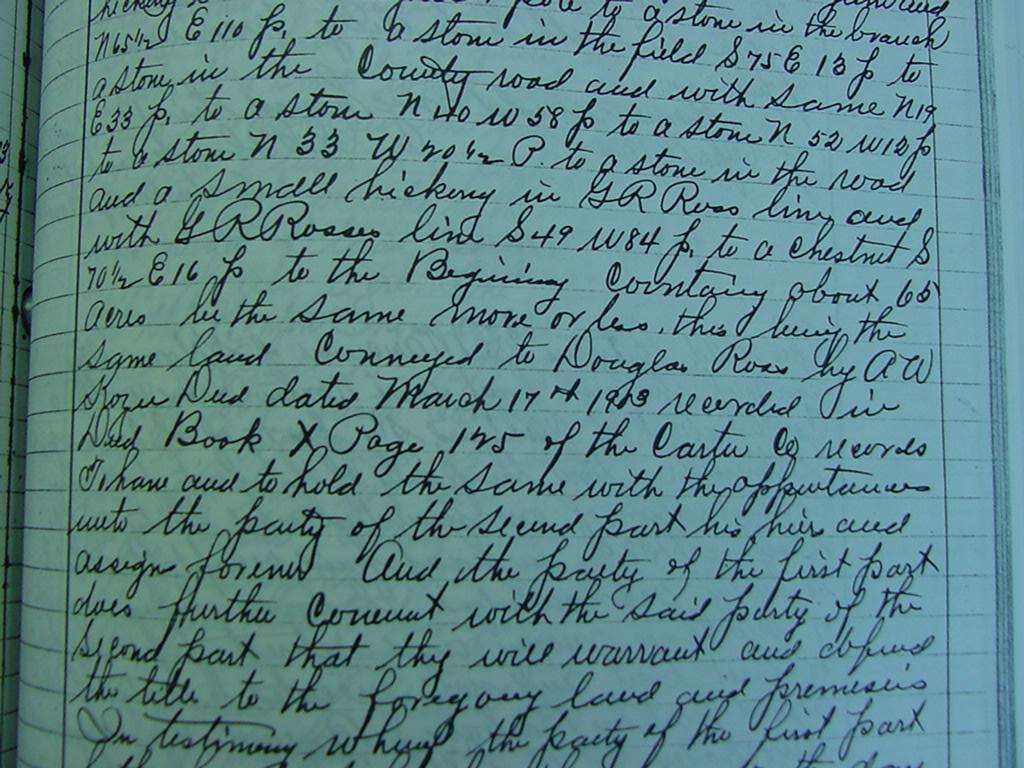 pole to a stone in the branch
N 65 1/2 E 110 p, to a stone in the field S 75 E 13 p to
a stone in the County road and with same N 19
E 33 p, to a stone N 40 W 58 p to a stone N 52 W 12 p
to a stone N 33 W 20 1/2 P. to a stone in the road
and a small hickory in G R Ross line and
with G R Rosses line S 49 W 84 p, to a chestnut S
70 1/2 E 16 p to the Begining Containg about 65
acres be the same more or less. this being the
same land Conveyed to Douglas Ross by A W
Deed dated March 17th 1903 recorded in
Deed Book X Page 125 of the Carter Co records
To have and to hold the same with the appurtances
unto the party of the second part his heirs and
assign forever And the party of the first part
does further Convenat with the said party of the
second part that they will warrant and defend
the title to the foregoing land and premises
In testimony whereof the party of the first part
the day